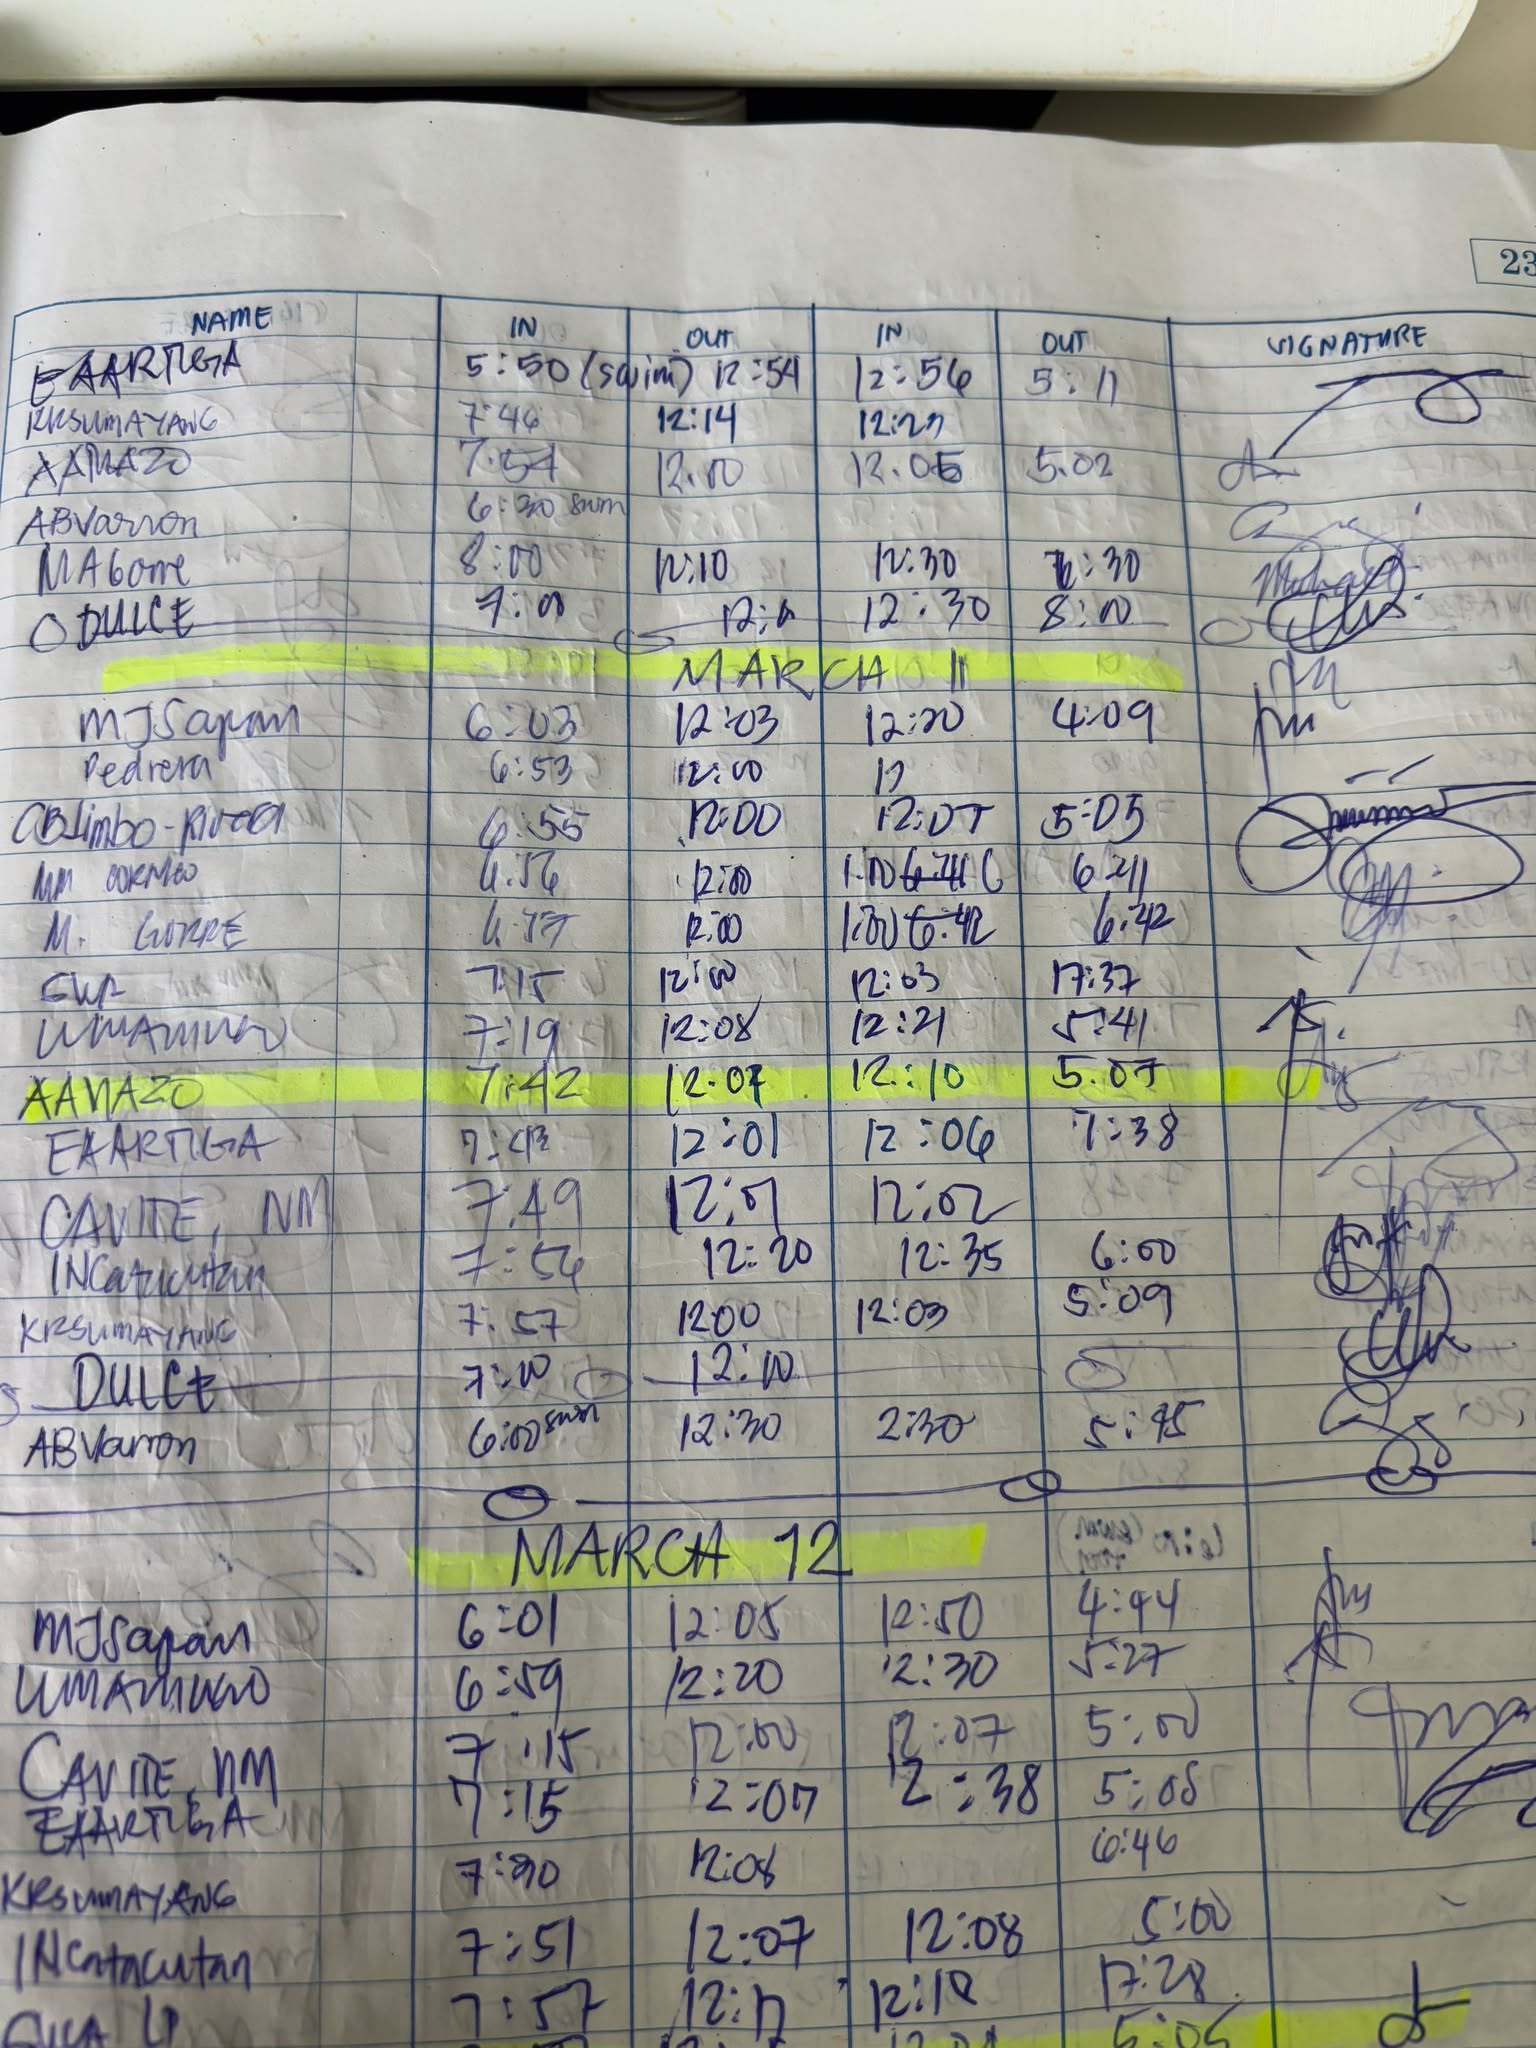 23
NAME IN OUT IN OUT SIGNATURE
EAARTIGA 5:50 (swim) 12:54 12:56 5:11
KRSUMAYANG 7:46 12:14
AAMAZO 7:54 12:00 12:05 5:02
ABVarron 6:30 swim
MAGorre 8:00 12:10 12:30 7:30
DULCE 7:00 12:30 8:00
MARCH 11
MJSapan 6:03 12:03 12:20 4:09
Pedrera 6:53 12:00 12
CBLimbo-Rivera 6:55 12:00 12:07 5:05
6:56 12:00 1:00 6:41 6:41
M. GORRE 12:00 1:00 6:42 6:42
7:15 12:00 12:03 17:37
7:19 12:08 12:21 5:41
AAMAZO 7:42 12:07 12:10 5:07
EAARTIGA 12:01 12:06 7:38
CAVITE, NM 7:49 12:01 12:02
INCatacutan 7:56 12:20 12:35 6:00
KRSUMAYANG 7:57 1200 12:03 5:09
DULCE 7:00 12:10
ABVarron 6:00 swim 12:30 2:30 5:45
MARCH 12
MJSapan 6:01 12:05 12:50 4:44
6:59 12:20 12:30 5:27
CAVITE, NM 7:15 12:00 12:07 5:00
EAARTIGA 7:15 12:07 12:38 5:05
KRSUMAYANG 12:08 6:46
INCatacutan 7:51 12:07 12:08 5:00
7:57 12:12 12:18 17:28